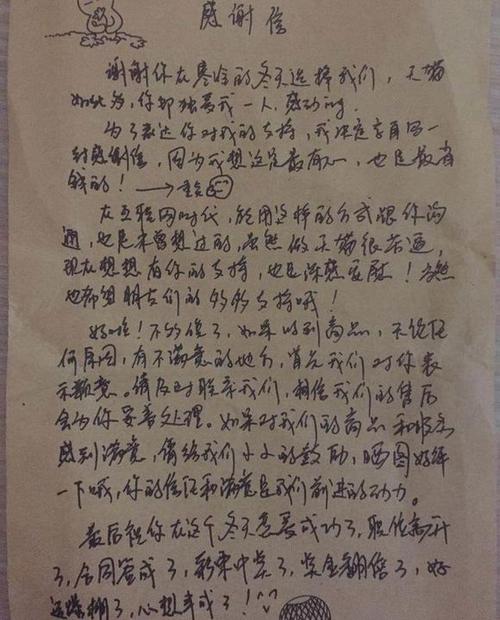 感谢信
谢谢你在寒冷的冬天选择我们，天猫
如此多，你却独爱我一人，感动ing.
为了表达你对我的支持，我决定亲自写一
封感谢信，因为我想这是最有心，也是最省
钱的！→
在互联网时代，能用这样的方式跟你沟
通，也是未曾想过的，虽然做天猫很苦逼，
现在想想有你的支持，也是深感安慰！当然
也希望朋友们的多多支持哦！
好啦！不多说了，如果收到商品，无论任
何原因，有不满意的地方，首先我们对你表
示歉意。请及时联系我们，相信我们的售后
会为你妥善处理。如果对我们的商品和服务
感到满意，请给我们小小的鼓励，晒图好评
一下哦，你的信任和满意是我们前进的动力。
最后祝你在这个冬天恋爱成功了，职位高升
了，合同签成了，彩票中奖了，奖金翻倍了，好
运爆棚了，心想事成了！^_^